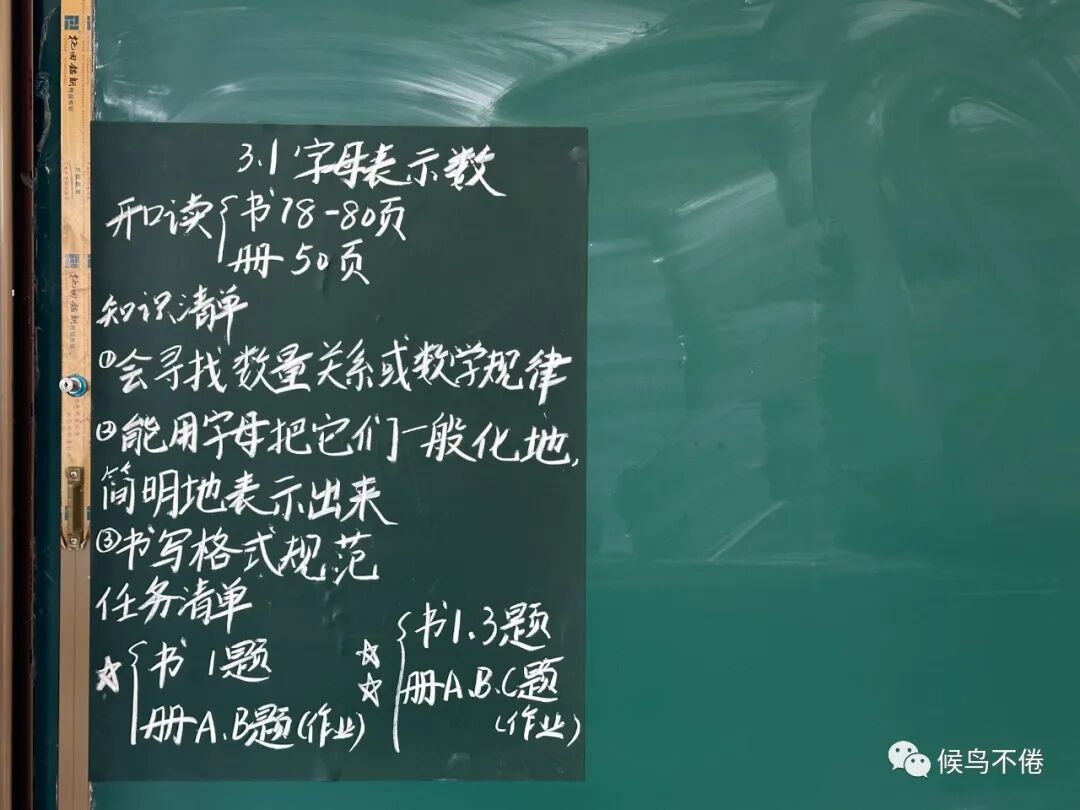 3.1 字母表示数
开口读 { 书78-80页
册50页
知识清单
①会寻找数量关系或数学规律
②能用字母把它们一般化地,
简明地表示出来
③书写格式规范
任务清单
☆ { 书 1题
册A、B题(作业)
☆☆ { 书1、3题
册A、B、C题
(作业)
候鸟不倦